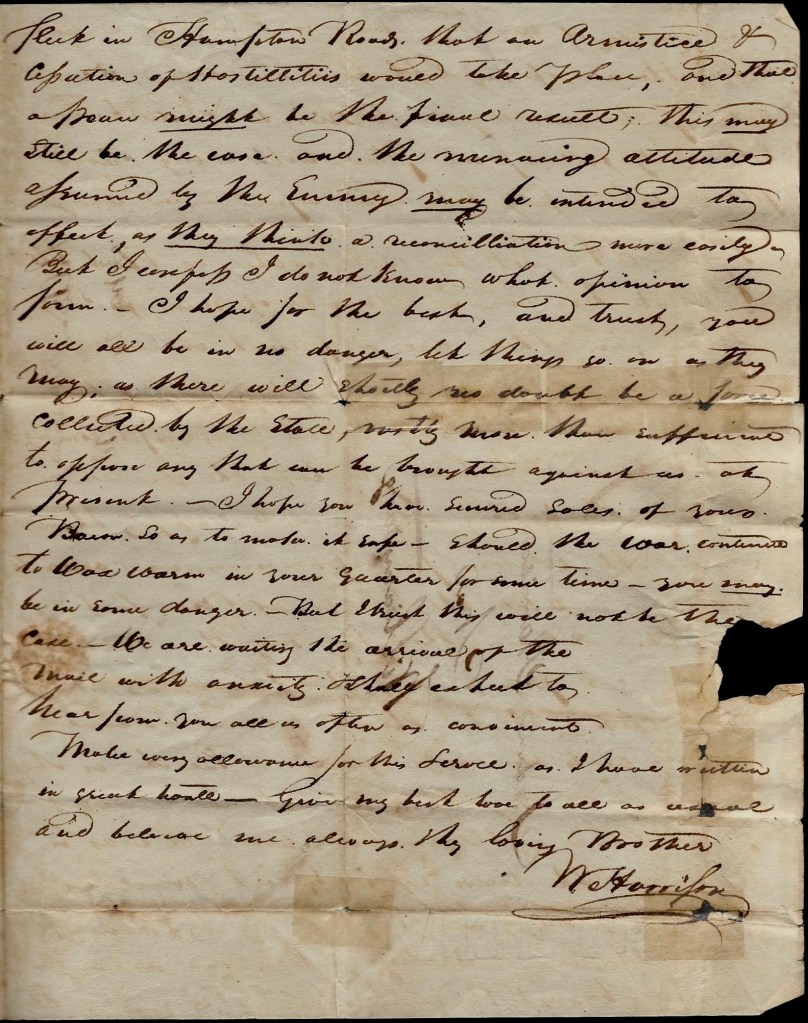 fleet in Hampton Roads. that an Armistice &
Cessation of Hostillitiis would take place, and that
a peace might be the final result; this may
still be. the case. and. the menacing attitude
assumed by the Enemy may be intended to
effect, as they think a reconcilliation more easily
But I confess I do not know what opinion to
form. - I hope for the best, and trust, you
will all be in no danger, let things go on as they
may; as there will shortly no doubt be a force
collected by the State, vastly more than sufficient
to oppose any that can be brought against us at
present. - I hope you have secured sales of your
Bacon. so as to make it safe - should the war. continue
to wax warm in your quarter for some time - you may.
be in some danger. - But I trust this will not be the
case. - We are waiting the arrival of the
Mail with anxiety. I shall expect to
hear from you all as often as convenient.
Make every allowance for this as I have written
in great haste - Give my best love to all as usual
and believe me always. thy loving Brother
W Harrison